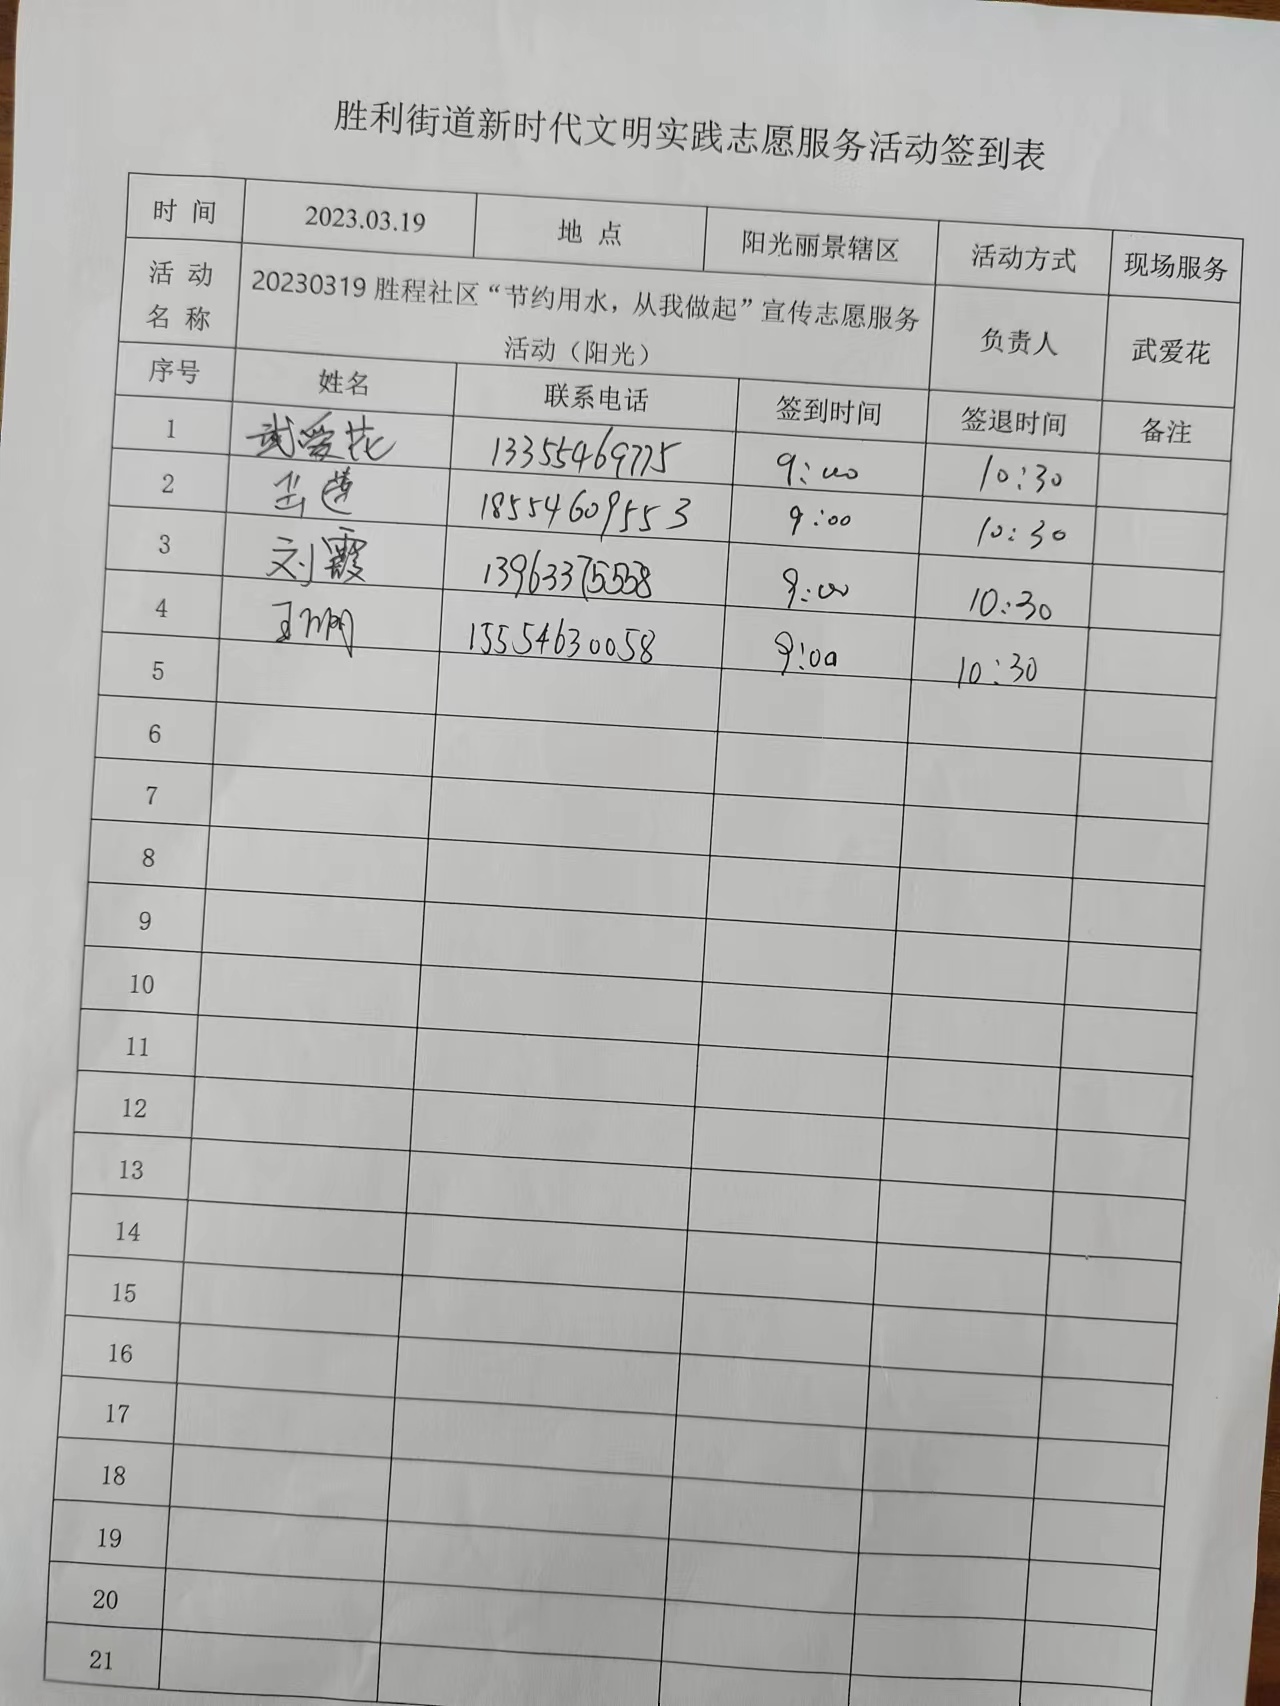 胜利街道新时代文明实践志愿服务活动签到表
时 间 2023.03.19 地 点 阳光丽景辖区 活动方式 现场服务
活 动
名 称
20230319 胜程社区“节约用水，从我做起”宣传志愿服务
活动（阳光）
负责人 武爱花
序号 姓名 联系电话 签到时间 签退时间 备注
1 武爱花 13355469775 9:00 10:30
2 18554609553 9:00 10:30
3 刘霞 13963375558 9:00 10:30
4 15554630058 9:00 10:30
5
6
7
8
9
10
11
12
13
14
15
16
17
18
19
20
21